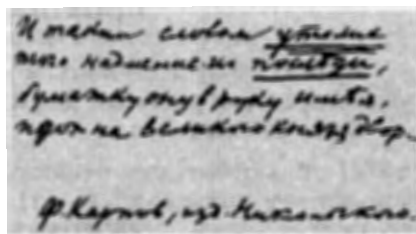 И таким словом утолив
того надмение и победы,
бумажку ону в руку имея,
пдоп на великого князя двор.
Ф. Карпов, изд. Никольского.